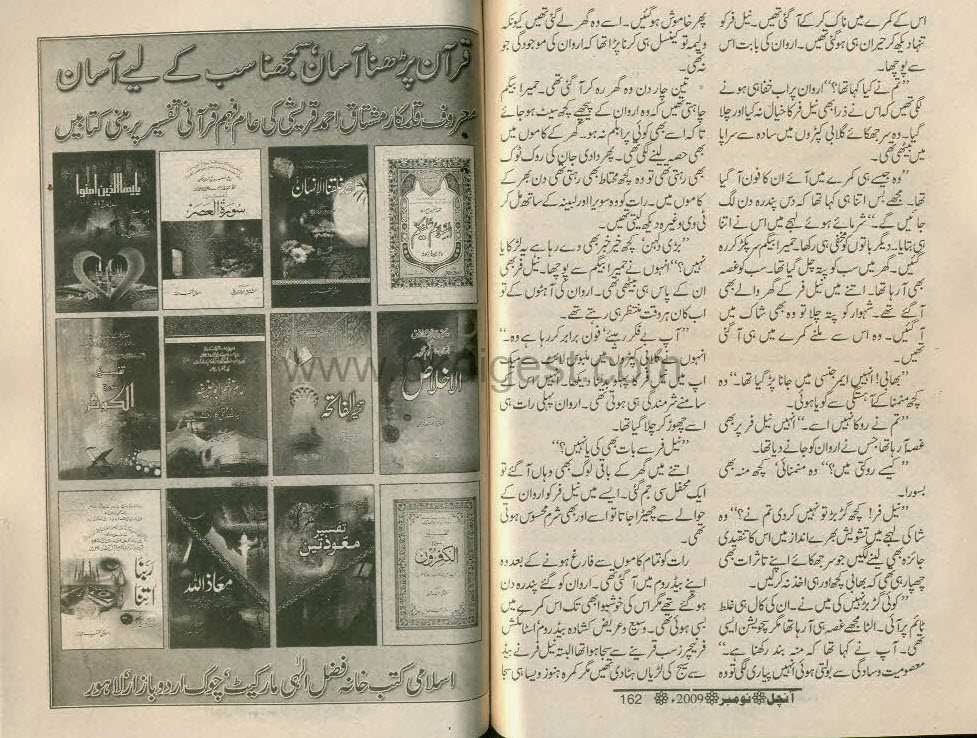 اس کے کمرے میں ناک کر کے آ گئی تھیں۔ نیل فر کو
تنہا دیکھ کر حیران ہی ہو گئی تھیں۔ اروان کی بابت اس
سے پوچھا۔
”تم نے کیا کہا تھا؟“ اروان پر اب خفا ہی ہونے
لگی تھیں کہ اس نے ذرا بھی نیل فر کا خیال نہ کیا اور چلا
گیا۔ وہ سر جھکائے گلابی کپڑوں میں سادہ سے سراپا
میں بیٹھی تھی۔
”وہ جیسے ہی کمرے میں آئے ان کا فون آ گیا
تھا۔ مجھے بس اتنا ہی کہا تھا کہ دس پندرہ دن لگ
جائیں گے۔“ شرمائے ہوئے لہجے میں اس نے اتنا
ہی بتایا۔ دیگر باتوں کو مخفی ہی رکھا۔ حمیرا بیگم سر پکڑ کر رہ
گئیں۔ گھر میں سب کو پتہ چل گیا تھا۔ سب کو غصہ
بھی آ رہا تھا۔ اتنے میں نیل فر کے گھر والے بھی
آ گئے تھے۔ شہوار کو پتہ چلا تو وہ بھی شاک میں
آ گئیں۔ وہ اس سے ملنے کمرے میں ہی آ گئی
تھیں۔
”بھابی! انہیں ایمرجنسی میں جانا پڑ گیا تھا۔“ وہ
کچھ منمنا کے آہستگی سے گویا ہوئی۔
”تم نے روکا نہیں اسے۔“ انہیں نیل فر پر بھی
غصہ آ رہا تھا جس نے اروان کو جانے دیا تھا۔
”کیسے روکتی میں؟“ وہ منمنائی‘ کچھ منہ بھی
بسورا۔
”نیل فر! کچھ گڑبڑ تو نہیں کر دی تم نے؟“ وہ
شاکی لہجے میں تشویش بھرے انداز میں اس کا تنقیدی
جائزہ بھی لینے لگیں جو سر جھکائے اپنے تاثرات بھی
چھپا رہی تھی کہ بھابی کچھ اور ہی اخذ نہ کر لیں۔
”کوئی گڑبڑ نہیں کی میں نے۔ ان کی کال ہی غلط
ٹائم پر آئی۔ الٹا مجھے غصہ ہی آ رہا تھا مگر سچویشن ایسی
تھی۔ آپ نے کہا تھا کہ منہ بند رکھنا ہے۔“
معصومیت و سادگی سے بولتی ہوئی انہیں پیاری لگی تو وہ
پھر خاموش ہو گئیں۔ اسے وہ گھر لے گئی تھیں کیونکہ
ولیمہ تو کینسل ہی کرنا پڑا تھا کہ اروان کی موجودگی جو
نہ تھی۔
تین چار دن وہ گھر رہ کر آ گئی تھی۔ حمیرا بیگم
چاہتی تھیں کہ وہ اروان کے پیچھے کچھ سیٹ ہو جائے
تاکہ اسے بھی کوئی پرابلم نہ ہو۔ گھر کے کاموں میں
بھی حصہ لینے لگی تھی۔ پھر دادی جان کی روک ٹوک
بھی رہتی تھی تو وہ کچھ محتاط بھی رہتی تھی دن بھر کے
کاموں میں۔ رات کو وہ سویرا اور لبینہ کے ساتھ مل کر
ٹی وی وغیرہ دیکھ لیتی تھیں۔
”بڑی دلہن‘ کچھ خیر خبر بھی دے رہا ہے یہ لڑکا یا
نہیں؟“ انہوں نے حمیرا بیگم سے پوچھا۔ نیل فر بھی
ان کے پاس ہی بیٹھی تھی۔ اروان کی آہٹوں کے تو
اب کان ہر وقت منتظر ہی رہتے تھے۔
”آپ بے فکر رہیے‘ فون برابر کر رہا ہے وہ۔“
سامنے شرمندگی ہی ہوتی تھی۔ اروان پہلی رات ہی
اسے چھوڑ کر چلا گیا تھا۔
”نیل فر سے بات بھی کی یا نہیں؟“
اتنے میں گھر کے باقی لوگ بھی وہاں آ گئے تو
ایک محفل سی جم گئی۔ ایسے میں نیل فر کو اروان کے
حوالے سے چھیڑا جاتا تو اسے اور بھی شرم محسوس ہوتی
تھی۔
رات کو تمام کاموں سے فارغ ہونے کے بعد وہ
اپنے بیڈروم میں آ گئی تھی۔ اروان کو گئے پندرہ دن
ہو گئے تھے مگر اس کی خوشبو ابھی تک اس کمرے میں
بسی ہوئی تھی۔ وسیع و عریض کشادہ بیڈروم‘ اسٹائلش
فرنیچرز سب قرینے سے سجا ہوا تھا البتہ نیل فر نے بیڈ
سے سیج کی لڑیاں ہٹا دی تھیں مگر کمرہ ہنوز ویسا ہی سجا
آنچل نومبر 2009ء 162
قرآن پڑھنا آسان‘ سمجھنا سب کے لیے آسان
معروف قلمکار مشتاق احمد قریشی کی عام فہم قرآنی تفسیر پر مبنی کتابیں
یایھا الذین امنوا
سورۃ العصر
خلقنا الانسان
تفسیر
الکوثر
الفاتحہ
الاخلاص
ربنا
اتنا
معاذ اللہ
تفسیر
معوذتین
الکفرون
اسلامی کتب خانہ فضل الٰہی مارکیٹ‘ چوک اردو بازار‘ لاہور